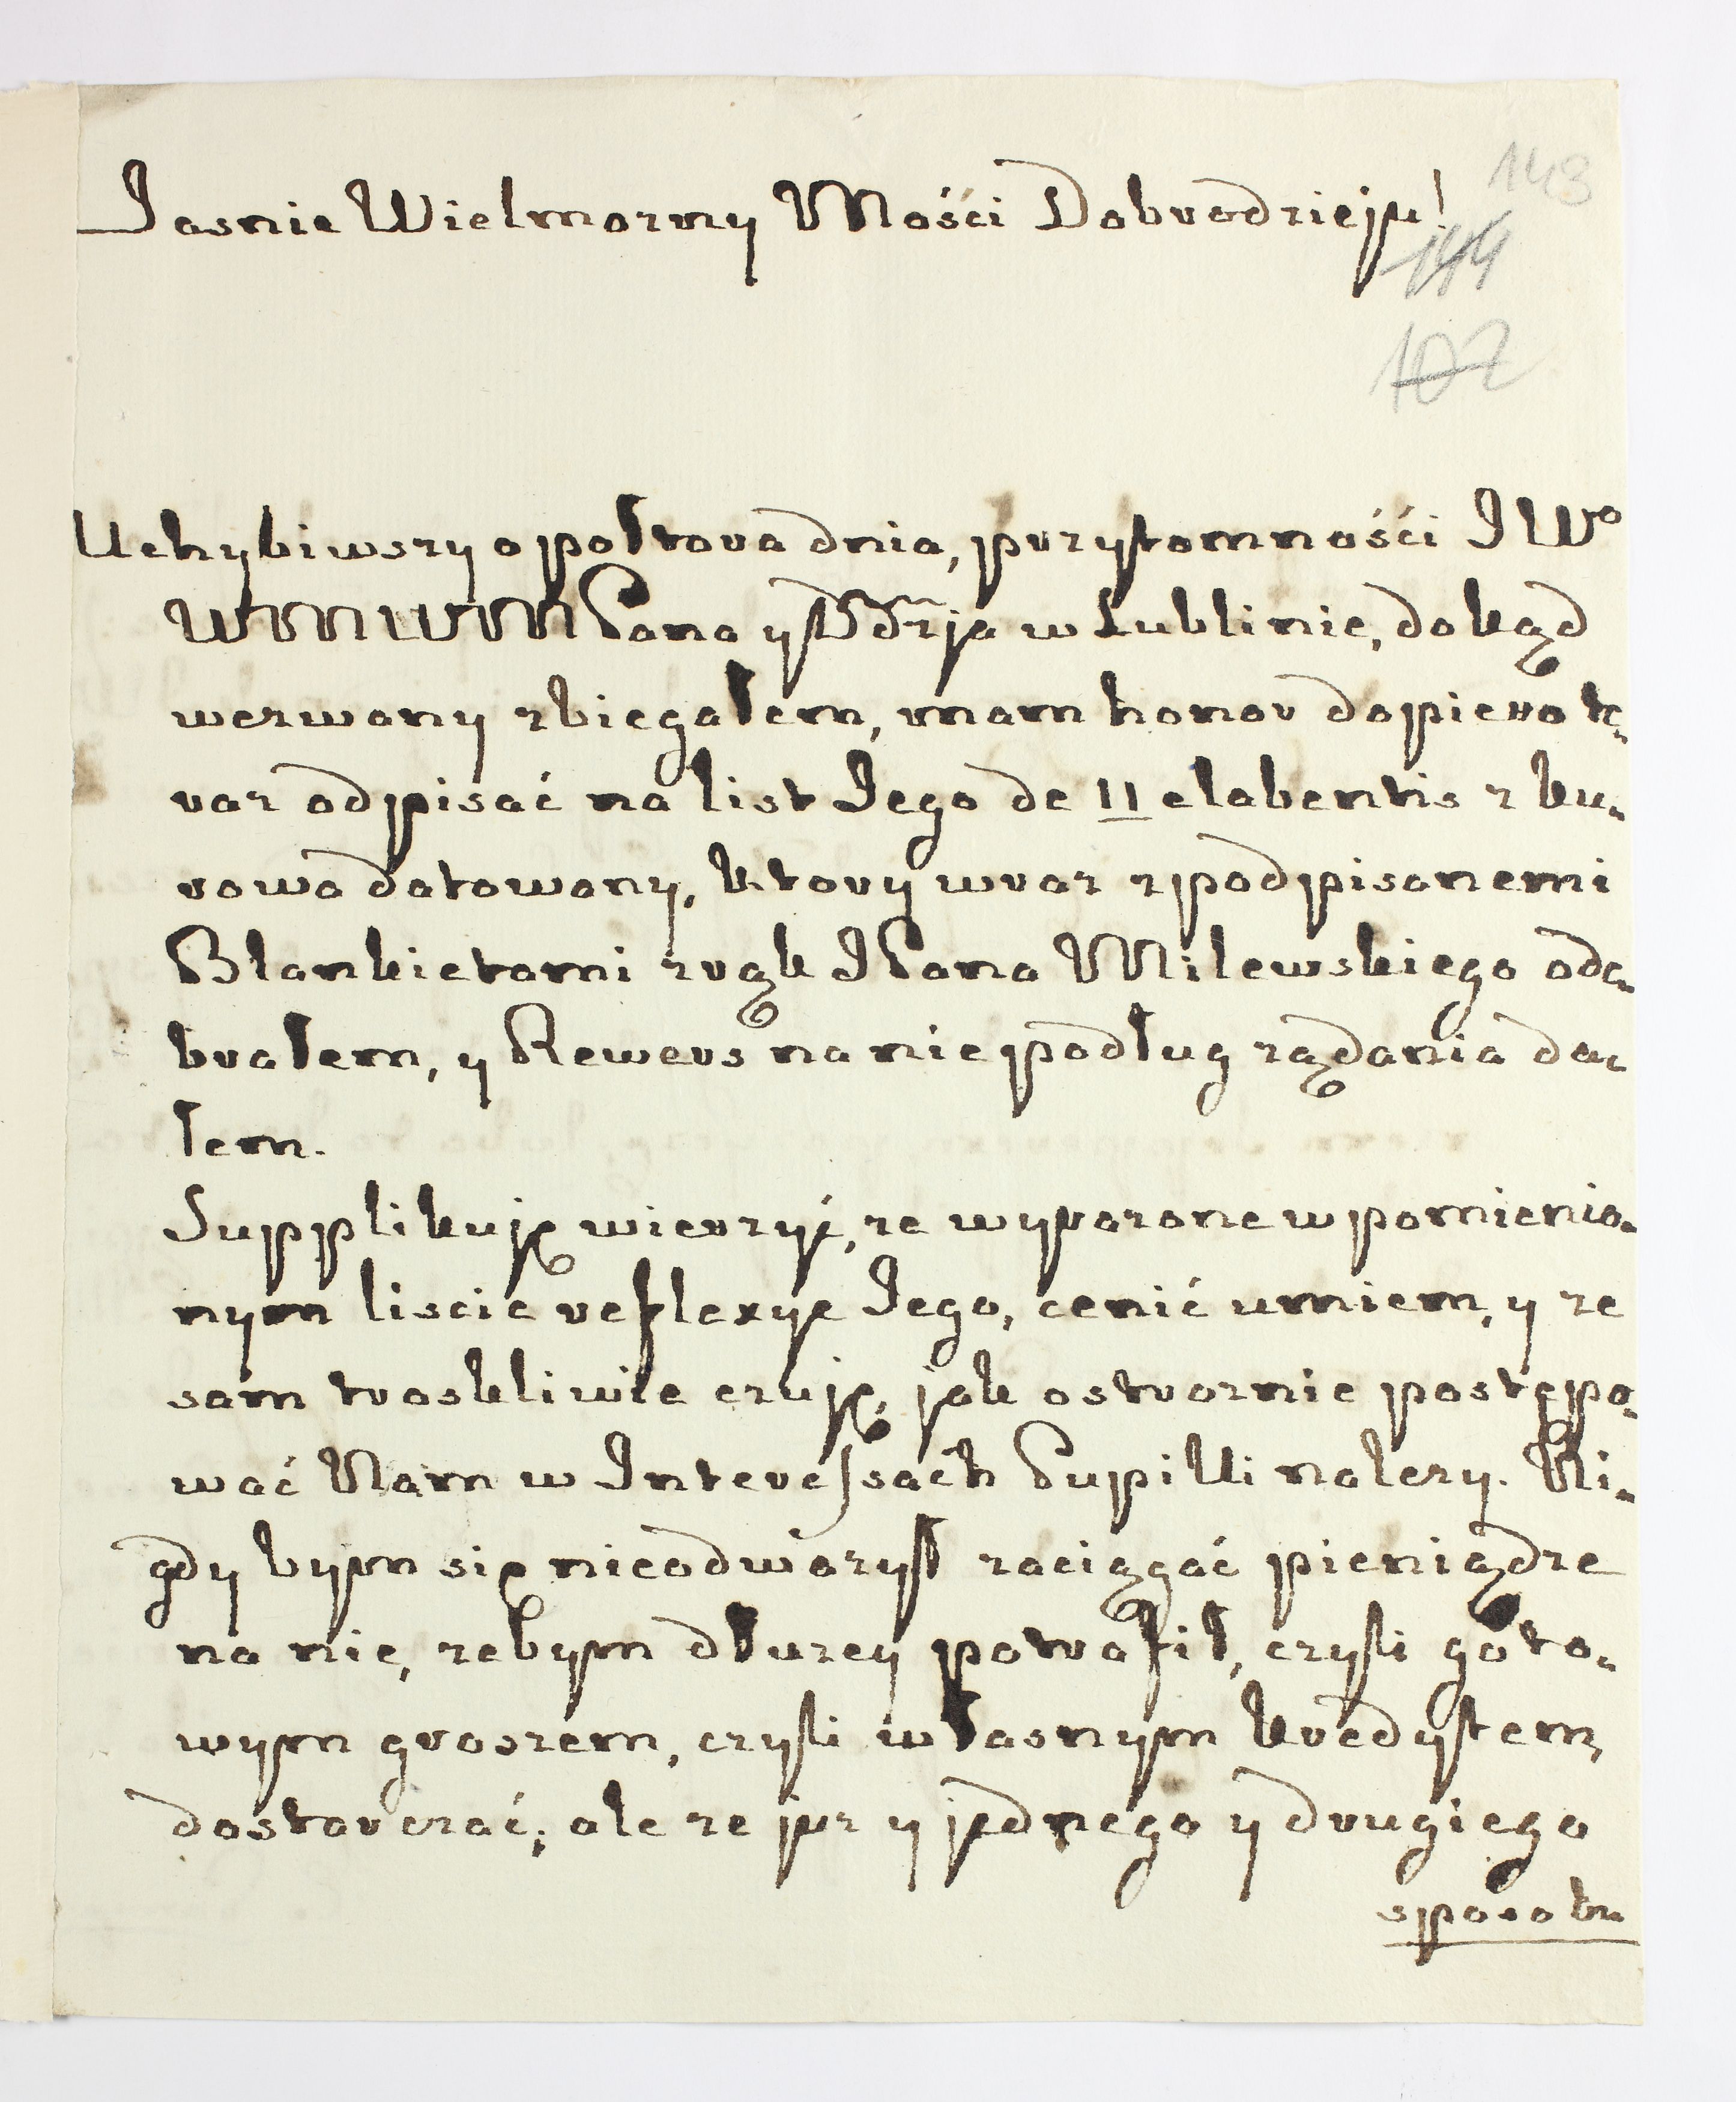 Jasnie Wielmozny Mości Dobrodzieju!
143
144
102
Uchybiwszy o połtora dnia, przytomnośći JWo
WMWM Pana y Ddzja w Lublinie, dokąd
wezwany zbiegałem, mam honor dopiero tę-
raz odpisać na list Jego de 11 elabentis z Ku-
rowa datowany, ktory wraz z podpisanemi
Blankietami z rąk JPana Milewskiego ode-
brałem, y Rewers na nie podług ządania da-
łem.
Supplikuję wierzyć, ze wyrazone w pomienio-
nym liscie reflexye Jego, cenić umiem, y ze
sam troskliwie czuję, jak ostroznie postępo-
wać Nam w Interessach Pupilli nalezy. Ni-
gdy bym się nieodwazył zaciągać pieniądze
na nię, zebym dłuzey potrafił, czyli goto-
wym groszem, czyli własnym kredytem,
dostarczać; ale ze juz y jednego y drugiego
sposobu